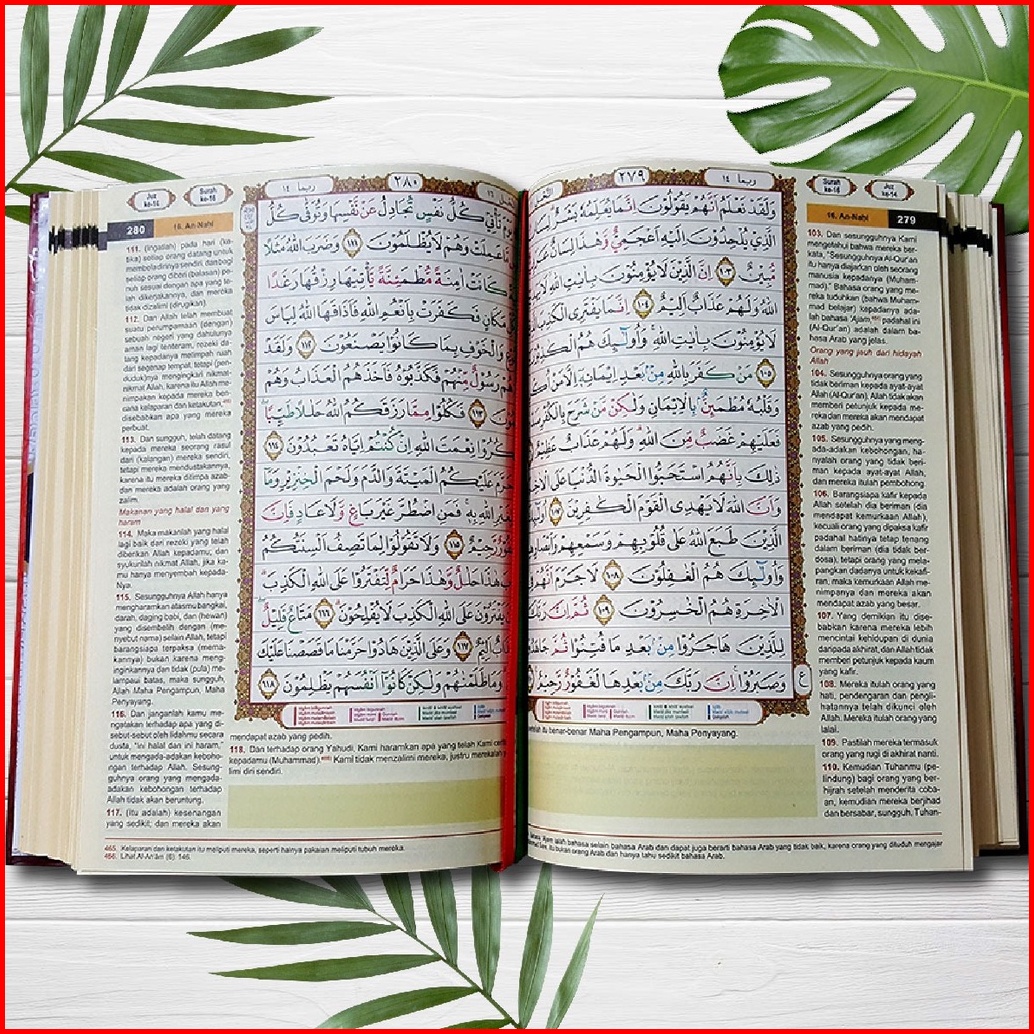 Surah ke-16
Juz ke-14
ربما ١٤
٢٧٩
16. An-Nahl 279
وَلَقَدْ نَعْلَمُ اَنَّهُمْ يَقُوْلُوْنَ اِنَّمَا يُعَلِّمُهٗ بَشَرٌۗ لِسَانُ
الَّذِيْ يُلْحِدُوْنَ اِلَيْهِ اَعْجَمِيٌّ وَّهٰذَا لِسَانٌ
مُّبِيْنٌ ١٠٣ اِنَّ الَّذِيْنَ لَا يُؤْمِنُوْنَ بِاٰيٰتِ اللّٰهِ
اللّٰهُ وَلَهُمْ عَذَابٌ اَلِيْمٌ ١٠٤ اِنَّمَا يَفْتَرِى الْكَذِبَ
لَا يُؤْمِنُوْنَ بِاٰيٰتِ اللّٰهِ وَاُولٰۤىِٕكَ هُمُ
١٠٥ مَنْ كَفَرَ بِاللّٰهِ مِنْۢ بَعْدِ اِيْمَانِهٖٓ اِلَّا مَنْ
وَقَلْبُهٗ مُطْمَىِٕنٌّۢ بِالْاِيْمَانِ وَلٰكِنْ مَّنْ شَرَحَ بِالْكُفْرِ
فَعَلَيْهِمْ غَضَبٌ مِّنَ اللّٰهِ وَلَهُمْ عَذَابٌ عَظِيْمٌ
ذٰلِكَ بِاَنَّهُمُ اسْتَحَبُّوا الْحَيٰوةَ الدُّنْيَا عَلَى
وَاَنَّ اللّٰهَ لَا يَهْدِى الْقَوْمَ الْكٰفِرِيْنَ
الَّذِيْنَ طَبَعَ اللّٰهُ عَلٰى قُلُوْبِهِمْ وَسَمْعِهِمْ وَاَبْصَارِهِمْ
وَاُولٰۤىِٕكَ هُمُ الْغٰفِلُوْنَ ١٠٨ لَا جَرَمَ اَنَّهُمْ
الْاٰخِرَةِ هُمُ الْخٰسِرُوْنَ ١٠٩ ثُمَّ اِنَّ رَبَّكَ
لِلَّذِيْنَ هَاجَرُوْا مِنْۢ بَعْدِ مَا فُتِنُوْا ثُمَّ جَاهَدُوْا
وَصَبَرُوْاۚ اِنَّ رَبَّكَ مِنْۢ بَعْدِهَا لَغَفُوْرٌ رَّحِيْمٌ
ع
103. Dan sesungguhnya Kami
mengetahui bahwa mereka ber-
kata, "Sesungguhnya Al-Qur'an
itu hanya diajarkan oleh seorang
manusia kepadanya (Muham-
mad)." Bahasa orang yang me-
reka tuduhkan (bahwa Muham-
mad belajar) kepadanya ada-
lah bahasa 'Ajam, padahal ini
(Al-Qur'an) adalah dalam ba-
hasa Arab yang jelas.
Orang yang jauh dari hidayah
Allah
104. Sesungguhnya orang yang
tidak beriman kepada ayat-ayat
Allah (Al-Qur'an), Allah tidak akan
memberi petunjuk kepada me-
reka dan mereka akan mendapat
azab yang pedih.
105. Sesungguhnya yang meng-
ada-adakan kebohongan, ha-
nyalah orang yang tidak beri-
man kepada ayat-ayat Allah,
dan mereka itulah pembohong.
106. Barangsiapa kafir kepada
Allah setelah dia beriman (dia
mendapat kemurkaan Allah),
kecuali orang yang dipaksa kafir
padahal hatinya tetap tenang
dalam beriman (dia tidak ber-
dosa), tetapi orang yang mela-
pangkan dadanya untuk kekafi-
ran, maka kemurkaan Allah me-
nimpanya dan mereka akan
mendapat azab yang besar.
107. Yang demikian itu dise-
babkan karena mereka lebih
mencintai kehidupan di dunia
daripada akhirat, dan Allah tidak
memberi petunjuk kepada kaum
yang kafir.
108. Mereka itulah orang yang
hati, pendengaran dan pengli-
hatannya telah dikunci oleh
Allah. Mereka itulah orang yang
lalai.
109. Pastilah mereka termasuk
orang yang rugi di akhirat nanti.
110. Kemudian Tuhanmu (pe-
lindung) bagi orang yang ber-
hijrah setelah menderita coba-
an, kemudian mereka berjihad
dan bersabar, sungguh, Tuhan-
itu benar-benar Maha Pengampun, Maha Penyayang.
ialah bahasa selain bahasa Arab dan dapat juga berarti bahasa Arab yang tidak baik, karena orang yang dituduh mengajar
itu bukan orang Arab dan hanya tahu sedikit bahasa Arab.
Juz ke-14
Surah ke-16
ربما ١٤
٢٨٠
280 16. An-Nahl
كُلُّ نَفْسٍ تُجَادِلُ عَنْ نَّفْسِهَا وَتُوَفّٰى كُلُّ
مَّا عَمِلَتْ وَهُمْ لَا يُظْلَمُوْنَ ١١١ وَضَرَبَ اللّٰهُ مَثَلًا
كَانَتْ اٰمِنَةً مُّطْمَىِٕنَّةً يَّأْتِيْهَا رِزْقُهَا رَغَدًا
مَكَانٍ فَكَفَرَتْ بِاَنْعُمِ اللّٰهِ فَاَذَاقَهَا اللّٰهُ لِبَاسَ
وَالْخَوْفِ بِمَا كَانُوْا يَصْنَعُوْنَ ١١٢ وَلَقَدْ
رَسُوْلٌ مِّنْهُمْ فَكَذَّبُوْهُ فَاَخَذَهُمُ الْعَذَابُ وَهُمْ
١١٣ فَكُلُوْا مِمَّا رَزَقَكُمُ اللّٰهُ حَلٰلًا طَيِّبًا
نِعْمَتَ اللّٰهِ اِنْ كُنْتُمْ اِيَّاهُ تَعْبُدُوْنَ ١١٤
عَلَيْكُمُ الْمَيْتَةَ وَالدَّمَ وَلَحْمَ الْخِنْزِيْرِ وَمَآ
اللّٰهِ بِهٖۚ فَمَنِ اضْطُرَّ غَيْرَ بَاغٍ وَّلَا عَادٍ فَاِنَّ
رَّحِيْمٌ ١١٥ وَلَا تَقُوْلُوْا لِمَا تَصِفُ اَلْسِنَتُكُمُ
هٰذَا حَلٰلٌ وَّهٰذَا حَرَامٌ لِّتَفْتَرُوْا عَلَى اللّٰهِ الْكَذِبَ
يَفْتَرُوْنَ عَلَى اللّٰهِ الْكَذِبَ لَا يُفْلِحُوْنَ ١١٦ مَتَاعٌ قَلِيْلٌ
اَلِيْمٌ ١١٧ وَعَلَى الَّذِيْنَ هَادُوْا حَرَّمْنَا مَا قَصَصْنَا عَلَيْكَ
وَمَا ظَلَمْنٰهُمْ وَلٰكِنْ كَانُوْٓا اَنْفُسَهُمْ يَظْلِمُوْنَ ١١٨
111. (Ingatlah) pada hari (ke-
tika) setiap orang datang untuk
membela dirinya sendiri, dan bagi
setiap orang diberi (balasan) pe-
nuh sesuai dengan apa yang te-
lah dikerjakannya, dan mereka
tidak dizalimi (dirugikan).
112. Dan Allah telah membuat
suatu perumpamaan (dengan)
sebuah negeri yang dahulunya
aman lagi tenteram, rezeki da-
tang kepadanya melimpah ruah
dari segenap tempat, tetapi (pen-
duduk)nya mengingkari nikmat-
nikmat Allah, karena itu Allah me-
nimpakan kepada mereka ben-
cana kelaparan dan ketakutan,
disebabkan apa yang mereka
perbuat.
113. Dan sungguh, telah datang
kepada mereka seorang rasul
dari (kalangan) mereka sendiri,
tetapi mereka mendustakannya,
karena itu mereka ditimpa azab
dan mereka adalah orang yang
zalim.
Makanan yang halal dan yang
haram
114. Maka makanlah yang halal
lagi baik dari rezeki yang telah
diberikan Allah kepadamu; dan
syukurilah nikmat Allah, jika ka-
mu hanya menyembah kepada-
Nya.
115. Sesungguhnya Allah hanya
mengharamkan atasmu bangkai,
darah, daging babi, dan (hewan)
yang disembelih dengan (me-
nyebut nama) selain Allah, tetapi
barangsiapa terpaksa (mema-
kannya) bukan karena meng-
inginkannya dan tidak (pula) me-
lampaui batas, maka sungguh,
Allah Maha Pengampun, Maha
Penyayang.
116. Dan janganlah kamu me-
ngatakan terhadap apa yang di-
sebut-sebut oleh lidahmu secara
dusta, "Ini halal dan ini haram,"
untuk mengada-adakan keboho-
ngan terhadap Allah. Sesung-
guhnya orang yang mengada-
adakan kebohongan terhadap
Allah tidak akan beruntung.
117. (Itu adalah) kesenangan
yang sedikit; dan mereka akan
mendapat azab yang pedih.
118. Dan terhadap orang Yahudi, Kami haramkan apa yang telah Kami
kepadamu (Muhammad). Kami tidak menzalimi mereka, justru merekalah
limi diri sendiri.
465. Kelaparan dan ketakutan itu meliputi mereka, seperti halnya pakaian meliputi tubuh mereka.
466. Lihat Al-An'ām (6): 146.